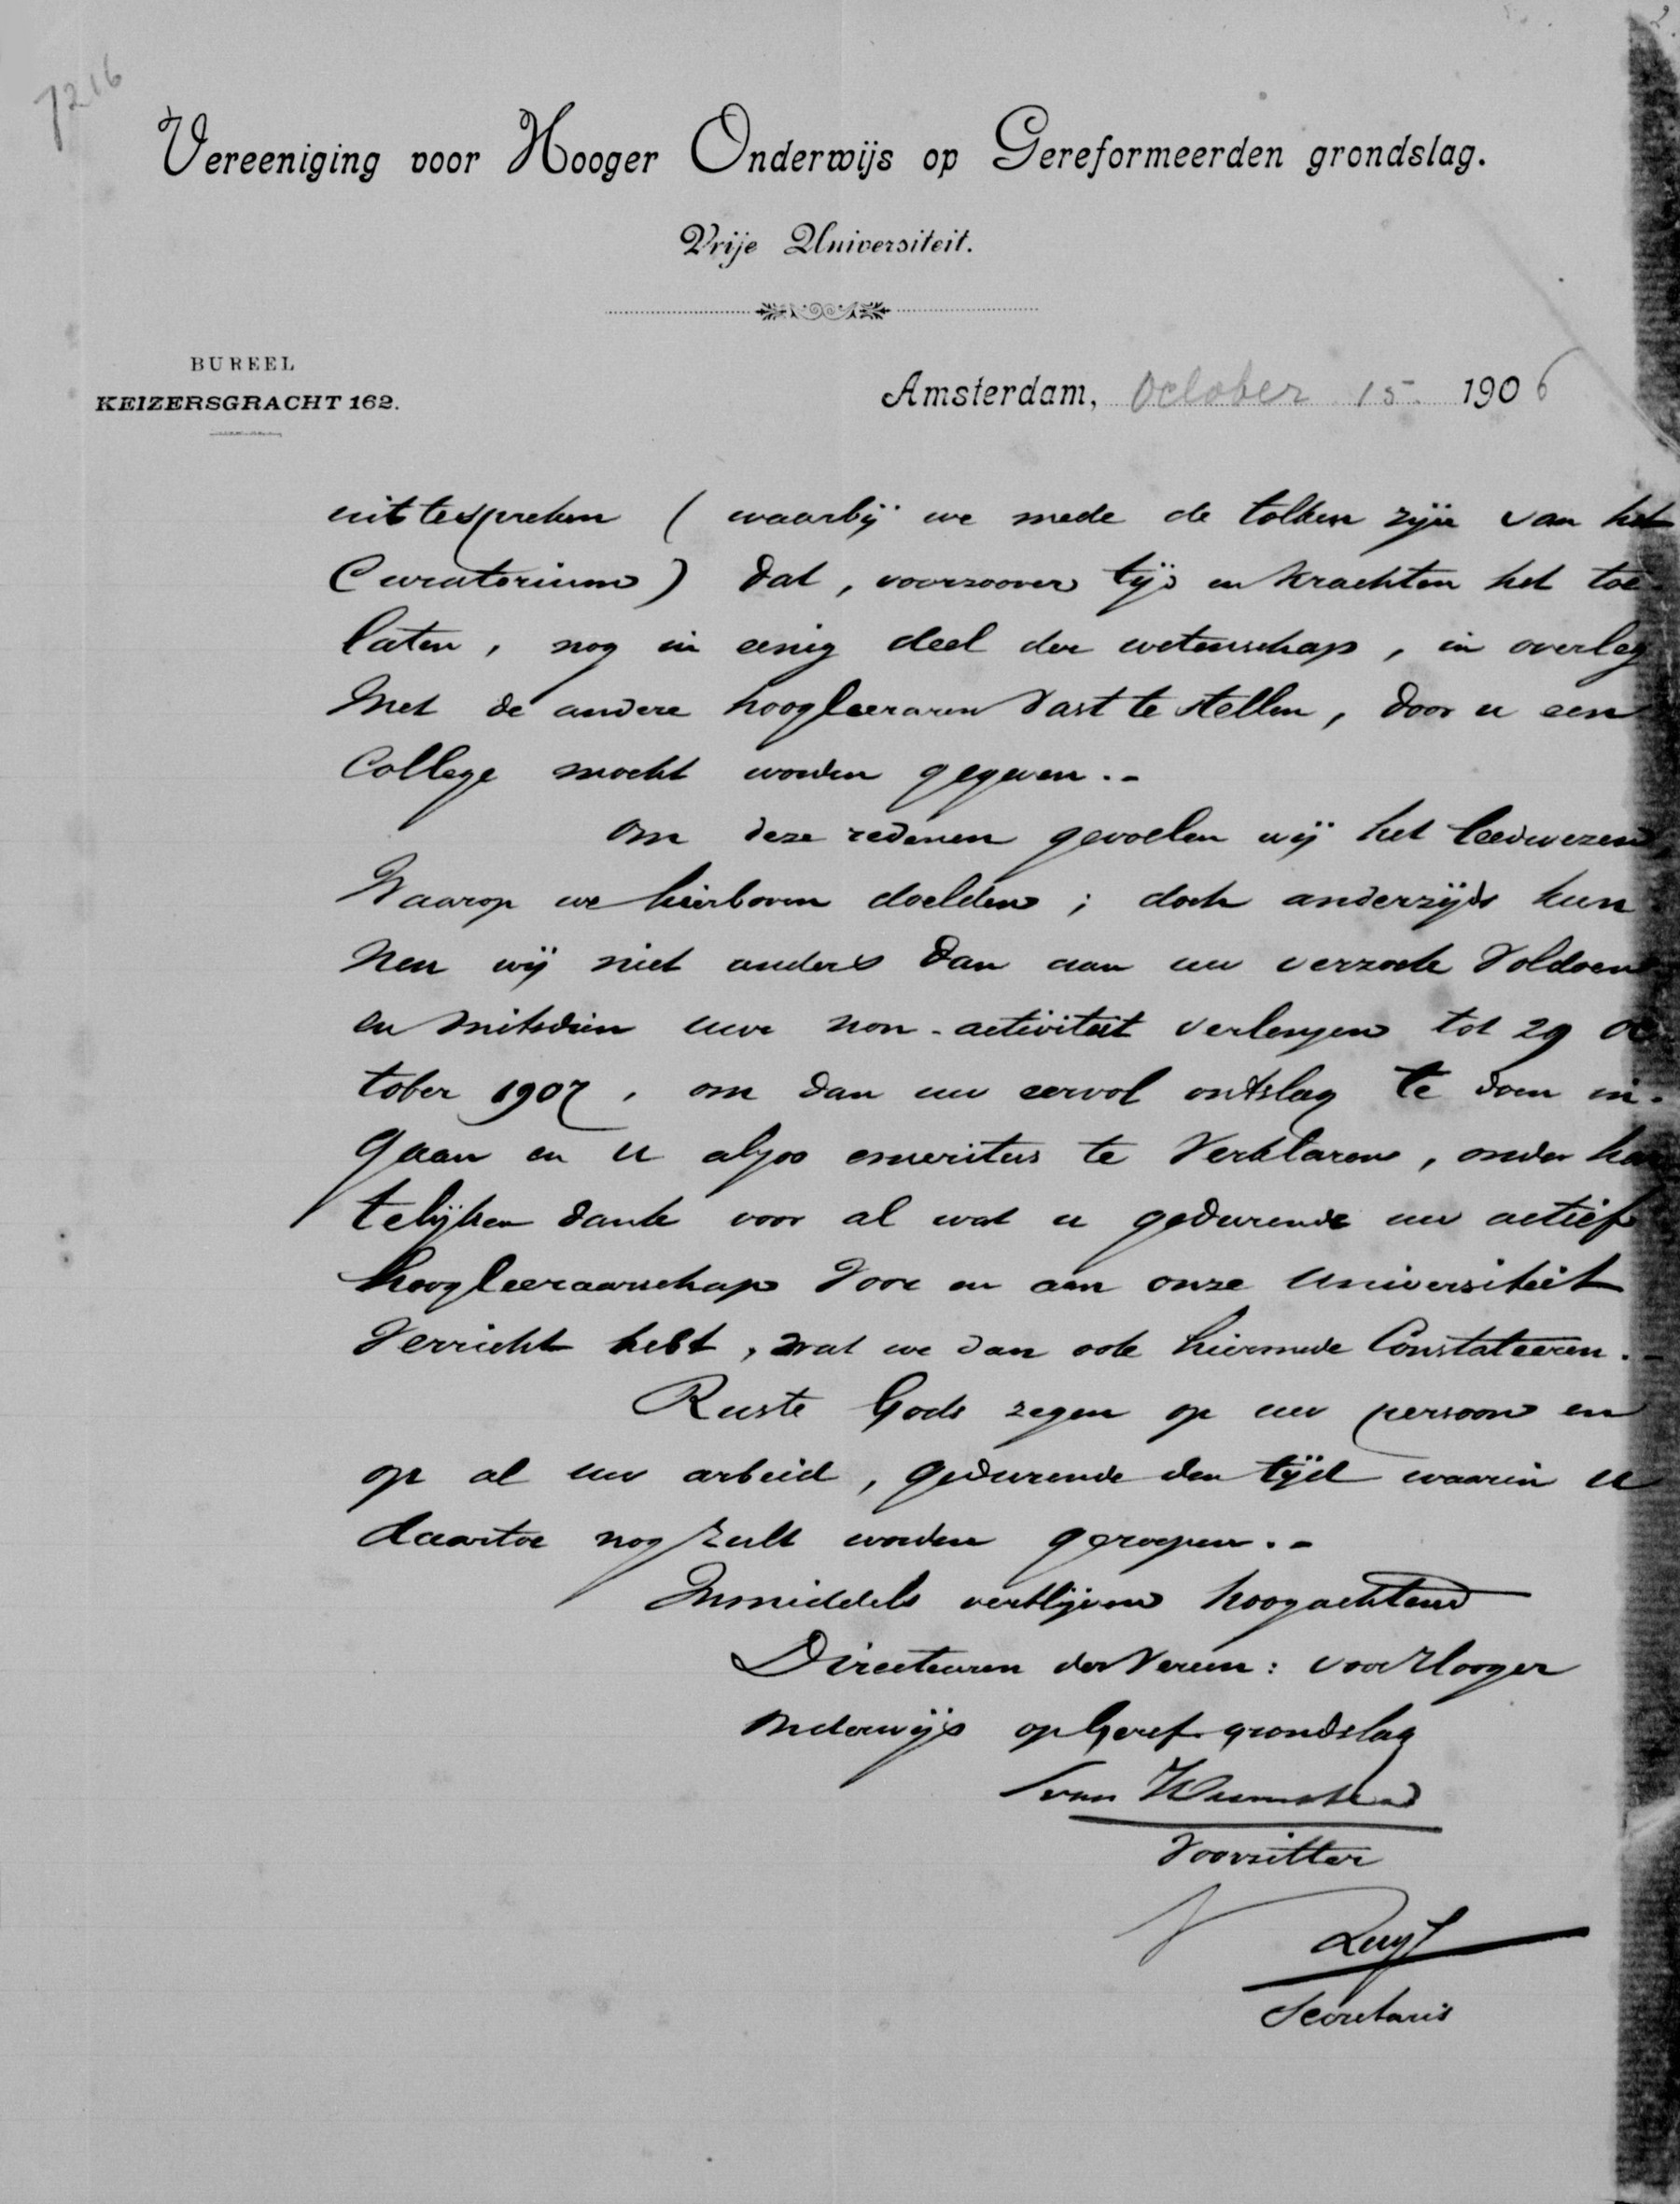 7216
2.
Vereeniging voor Hooger Onderwijs op Gereformeerden grondslag.
Vrije Universiteit.
BUREEL
KEIZERSGRACHT 162.
Amsterdam, October 15. 1906
uittespreken ( waarbij we mede de tolken zijn van het
Curatorium ) dat , voorzoover tijd en krachten het toe
laten , nog in eenig deel der wetenschap , in overleg
met de andere hoogleeraren vast te stellen , door u een
College mocht worden gegeven . -
Om deze redenen gevoelen wij het leedwezen
Waarop we hierboven doelden ; doch anderzijds kun
nen wij niet anders dan aan uw verzoek voldoen
en mitsdien uwe non - activiteit verlengen tot 29 Oc
tober 1907 , om dan uw eervol ontslag te doen in -
gaan en U alzoo emeritus te verklaren , onder har
telijken dank voor al wat u gedurende uw actief
hoogleeraarschap voor en aan onze Universiteit
verricht hebt , wat we dan ook hiermede Constateeren . -
Ruste Gods zegen op uw persoon en
op al uw arbeid , gedurende den tijd waarin U
daartoe nog zult worden geroepen . -
Inmiddels verblijven hoogachtend
Directeuren der Vereen : voor Hooger
Onderwijs op Geref grondslag
Voorzitter
Secretaris